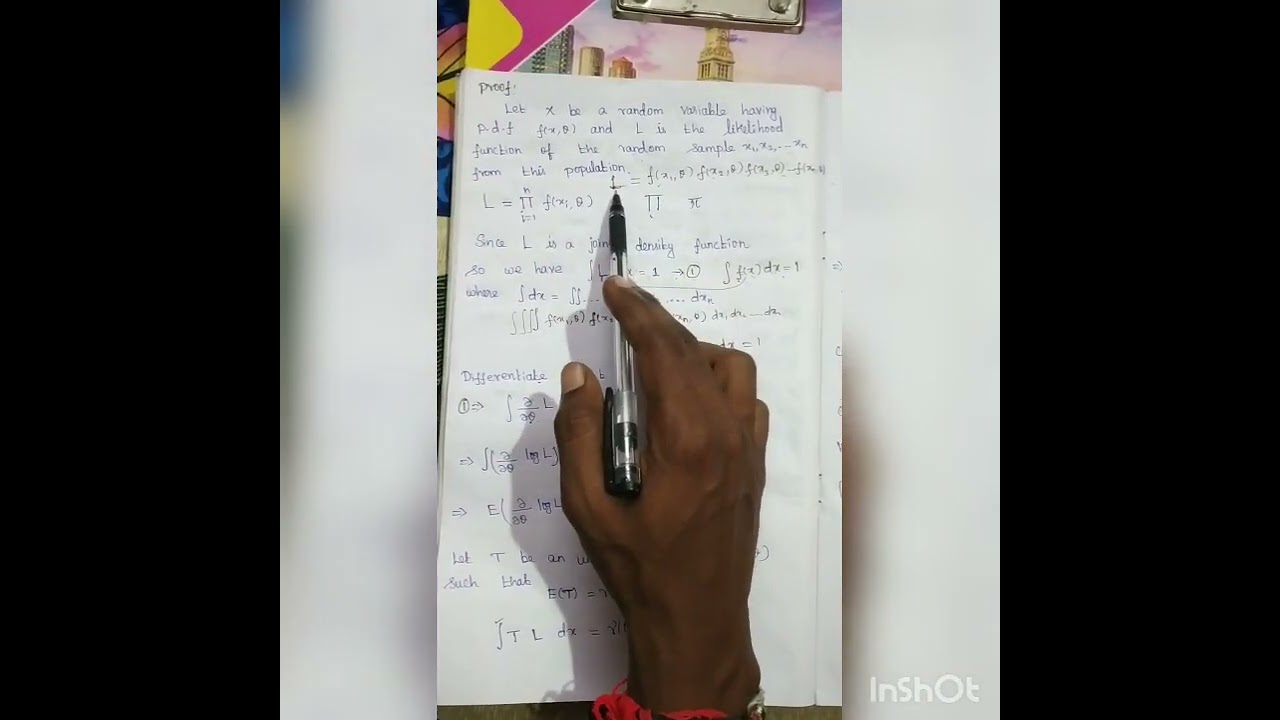 Proof:
Let x be a random variable having
p.d.f f(x,θ) and L is the likelihood
function of the random sample x₁,x₂,...xₙ
from this population.
L = f(x₁,θ) f(x₂,θ) f(x₃,θ)...f(xₙ,θ)
L = ∏ᵢ₌₁ⁿ f(xᵢ,θ) ∏ π
Since L is a joint density function
so we have ∫ L x = 1 → ① ∫ f(x) dx = 1 ⇒
where ∫dx = ∫∫... ... dxₙ
∫∫∫∫ f(x₁,θ) f(x₂ (xₙ,θ) dx₁ dx₂ ... dxₙ
dx = 1
Differentiate
① ⇒ ∫ ∂/∂θ L
⇒ ∫(∂/∂θ log L)
⇒ E(∂/∂θ log L
Let T be an
such that
E(T) =
∫ T L dx =
InShOt